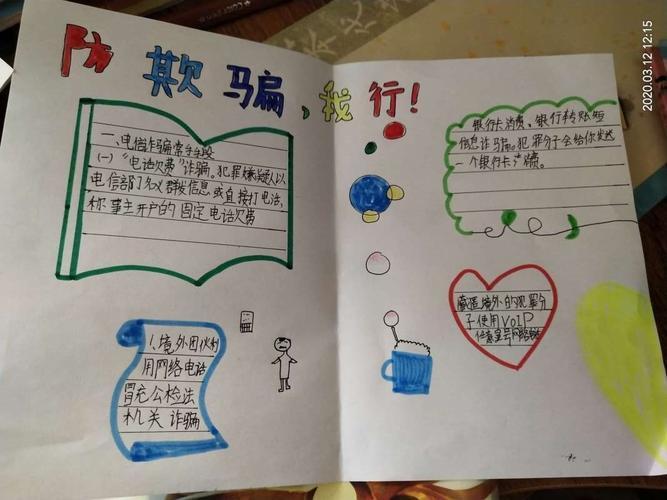 防欺骗，我行！
一、电信诈骗常手段
（一）“电话欠费”诈骗。犯罪嫌疑人以
电信部门名义群发信息或直接打电话，
称事主开户的固定电话欠费
银行卡消费、银行转账短
信息诈骗。犯罪分子会给你发送
一个银行卡消费。
1、境外团伙利
用网络电话
冒充公检法
机关诈骗
境外的犯罪分
子使用VOIP
2020.03.12 12:15